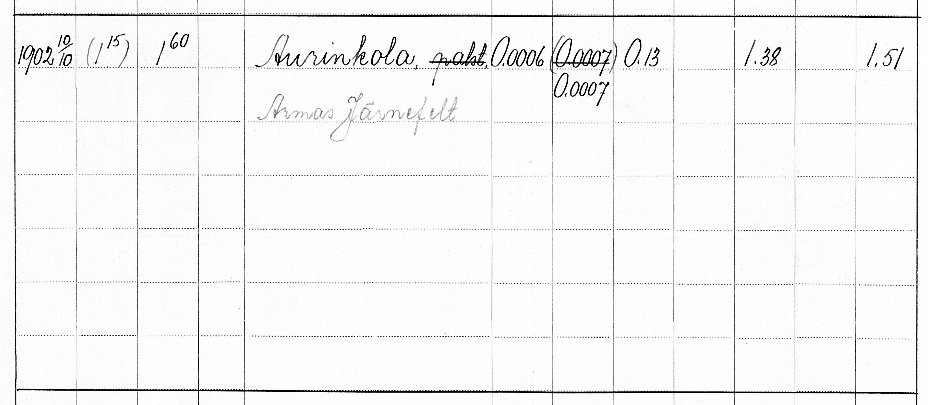 1902 10/10 (1 15) 1 60 Aurinkola, paht. 0.0006 (0.0007) 0.13 1.38 1.51
0.0007
Armas Järnefelt